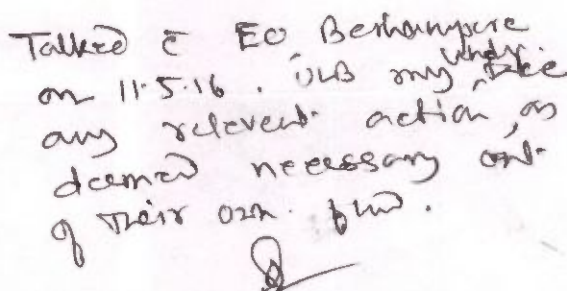 Talked c̄ EO, Berhampore
on 11.5.16. ULB may under take
any relevent action, as
deemed necessary out
of their own fund.